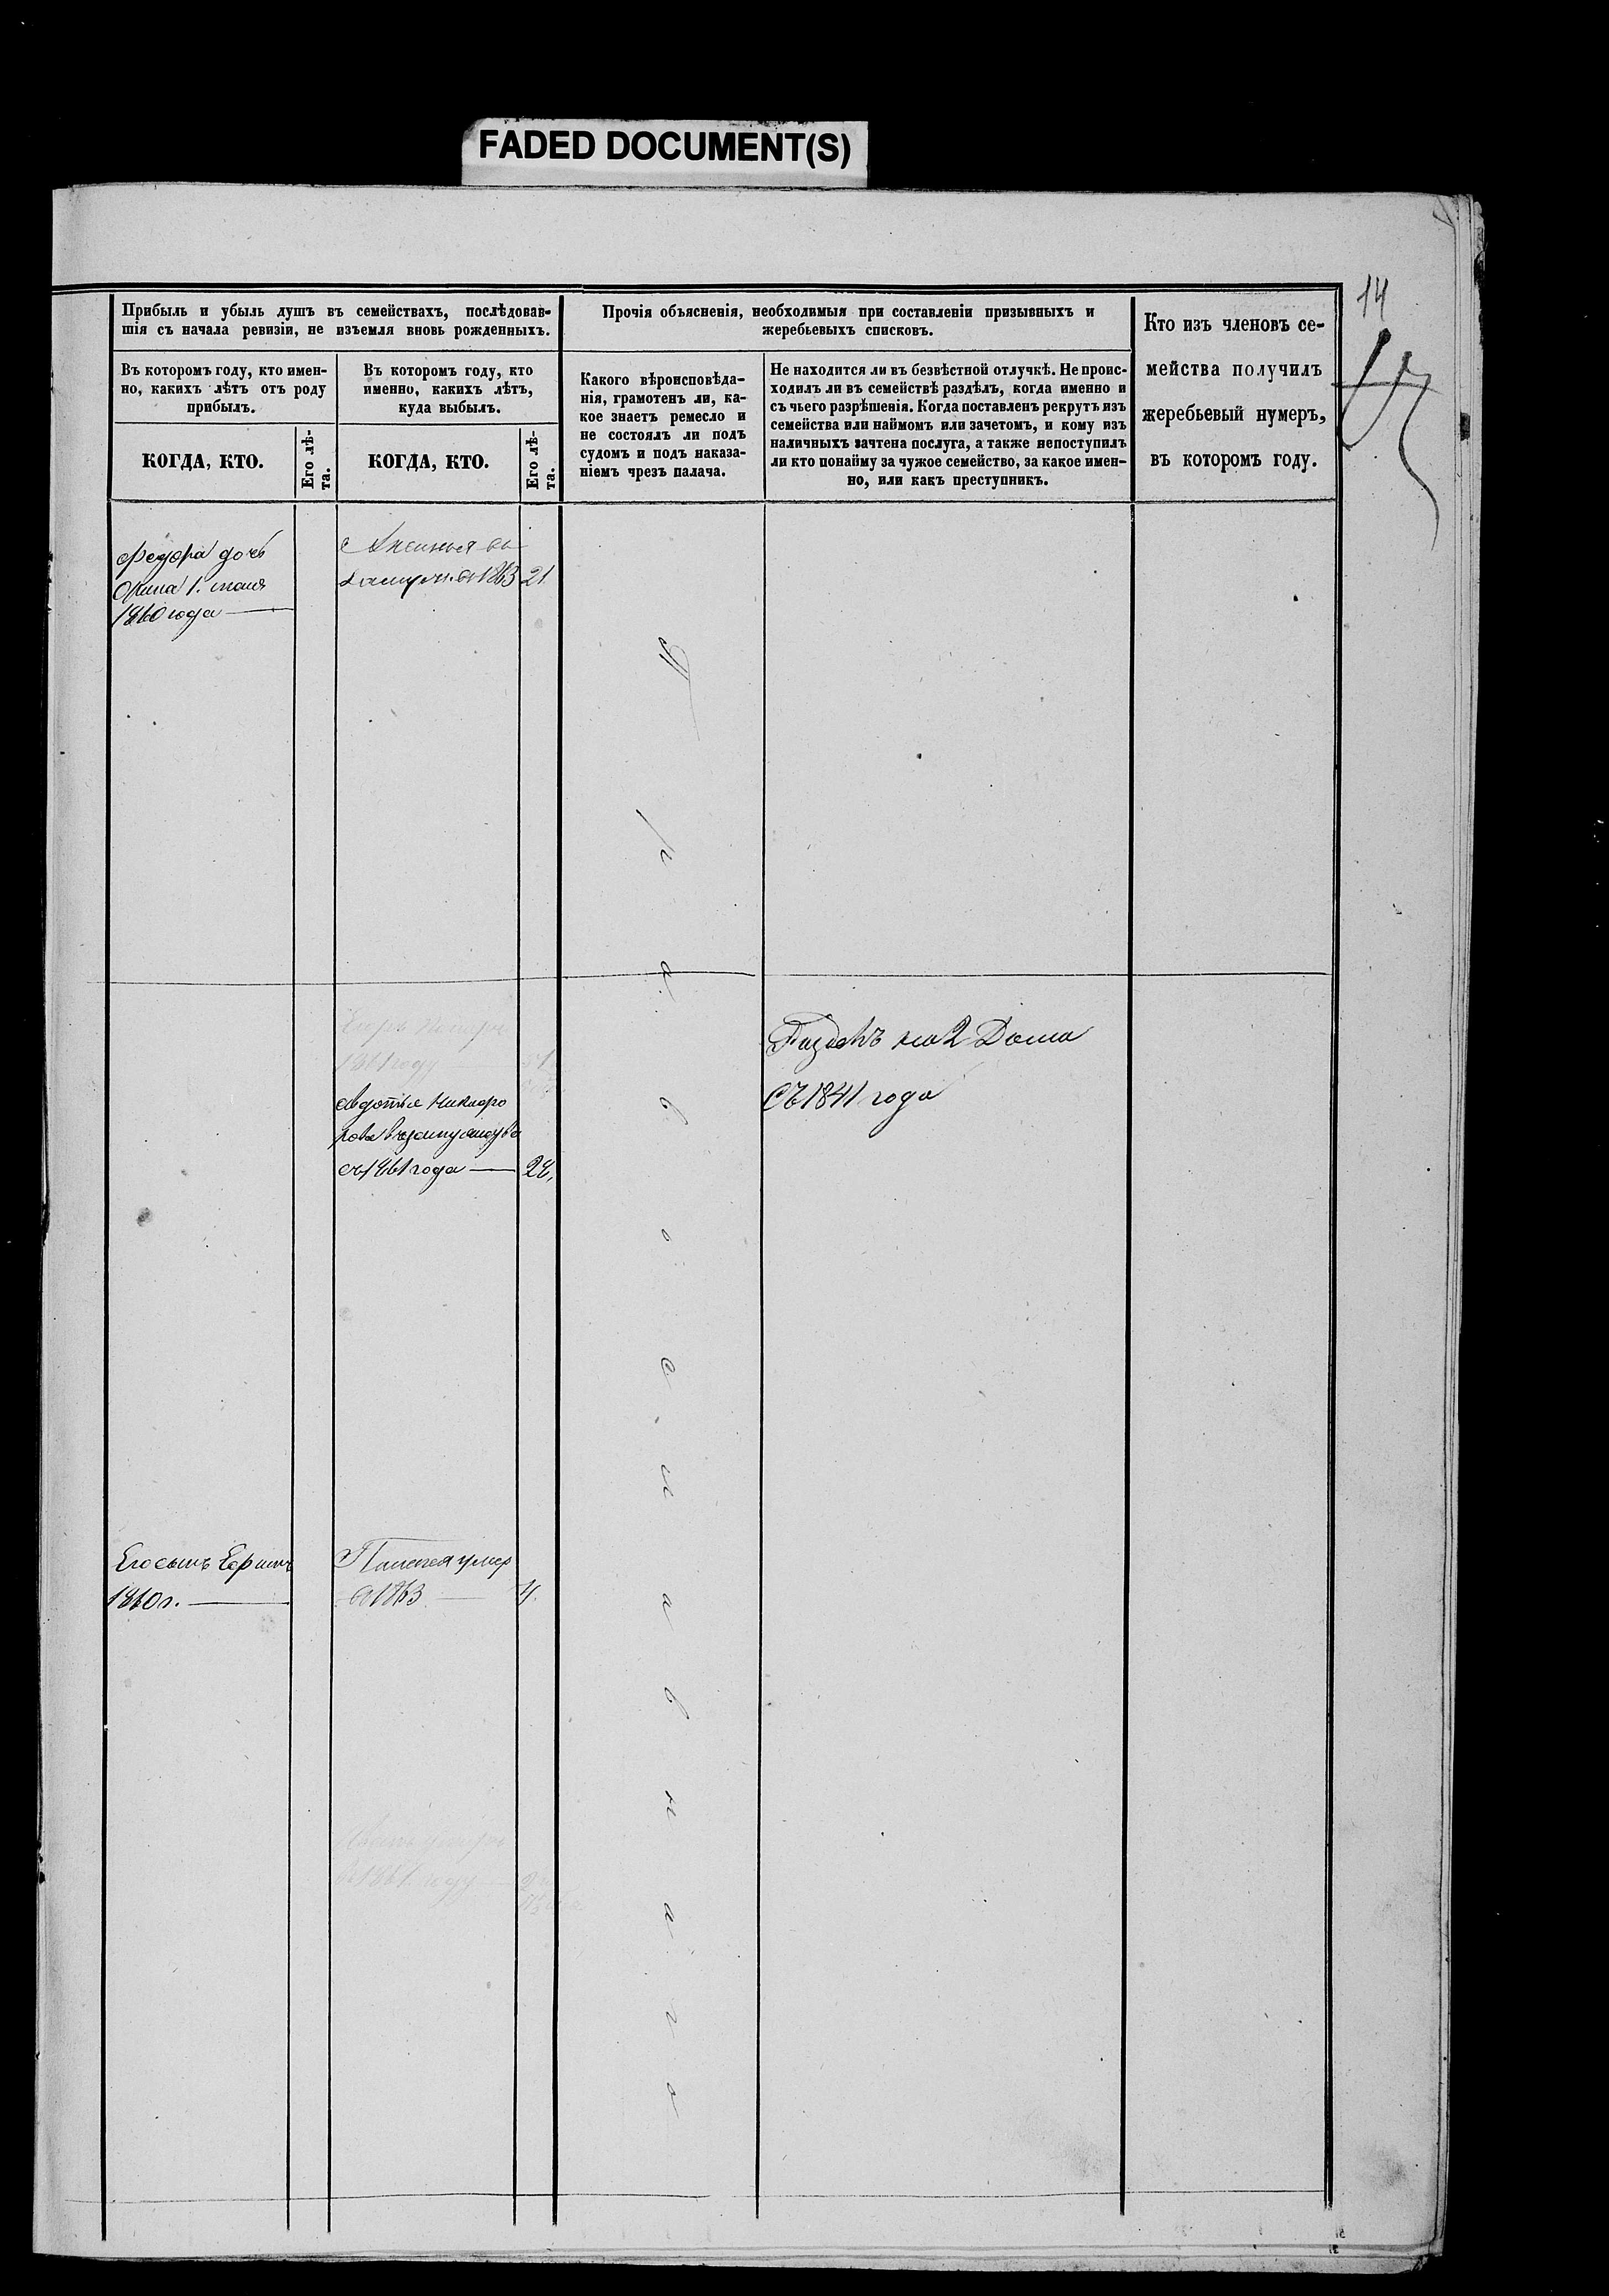 FADED DOCUMENT(S)
14
Прибыль и убыль душъ въ семействахъ, послѣдовав-
шія съ начала ревизіи, не изъемля вновь рожденныхъ.
Въ которомъ году, кто имен-
но, какихъ лѣтъ отъ роду
прибылъ.
КОГДА, КТО.
Его лѣ-
та.
Въ которомъ году, кто
именно, какихъ лѣтъ,
куда выбылъ.
КОГДА, КТО.
Его лѣ-
та.
Прочія объясненія, необходимыя при составленіи призывныхъ и
жеребьевыхъ списковъ.
Какого вѣроисповѣда-
нія, грамотенъ ли, ка-
кое знаетъ ремесло и
не состоялъ ли подъ
судомъ и подъ наказа-
ніемъ чрезъ палача.
Не находится ли въ безвѣстной отлучкѣ. Не проис-
ходилъ ли въ семействѣ раздѣлъ, когда именно и
съ чьего разрѣшенія. Когда поставленъ рекрутъ изъ
семейства или наймомъ или зачетомъ, и кому изъ
наличныхъ зачтена послуга, а также непоступилъ
ли кто понайму за чужое семейство, за какое имен-
но, или какъ преступникъ.
Кто изъ членовъ се-
мейства получилъ
жеребьевый нумеръ,
въ которомъ году.
Федора дочь
1.
1860 года
Аксинья въ
замуж. въ 1863 21
Православнаго
1861 году
Авдотья
съ 1861 года 28.
на 2 Дома
Съ 1841 года
Его сынъ
1860 г.
умер
въ 1863 4.
въ 1861 году